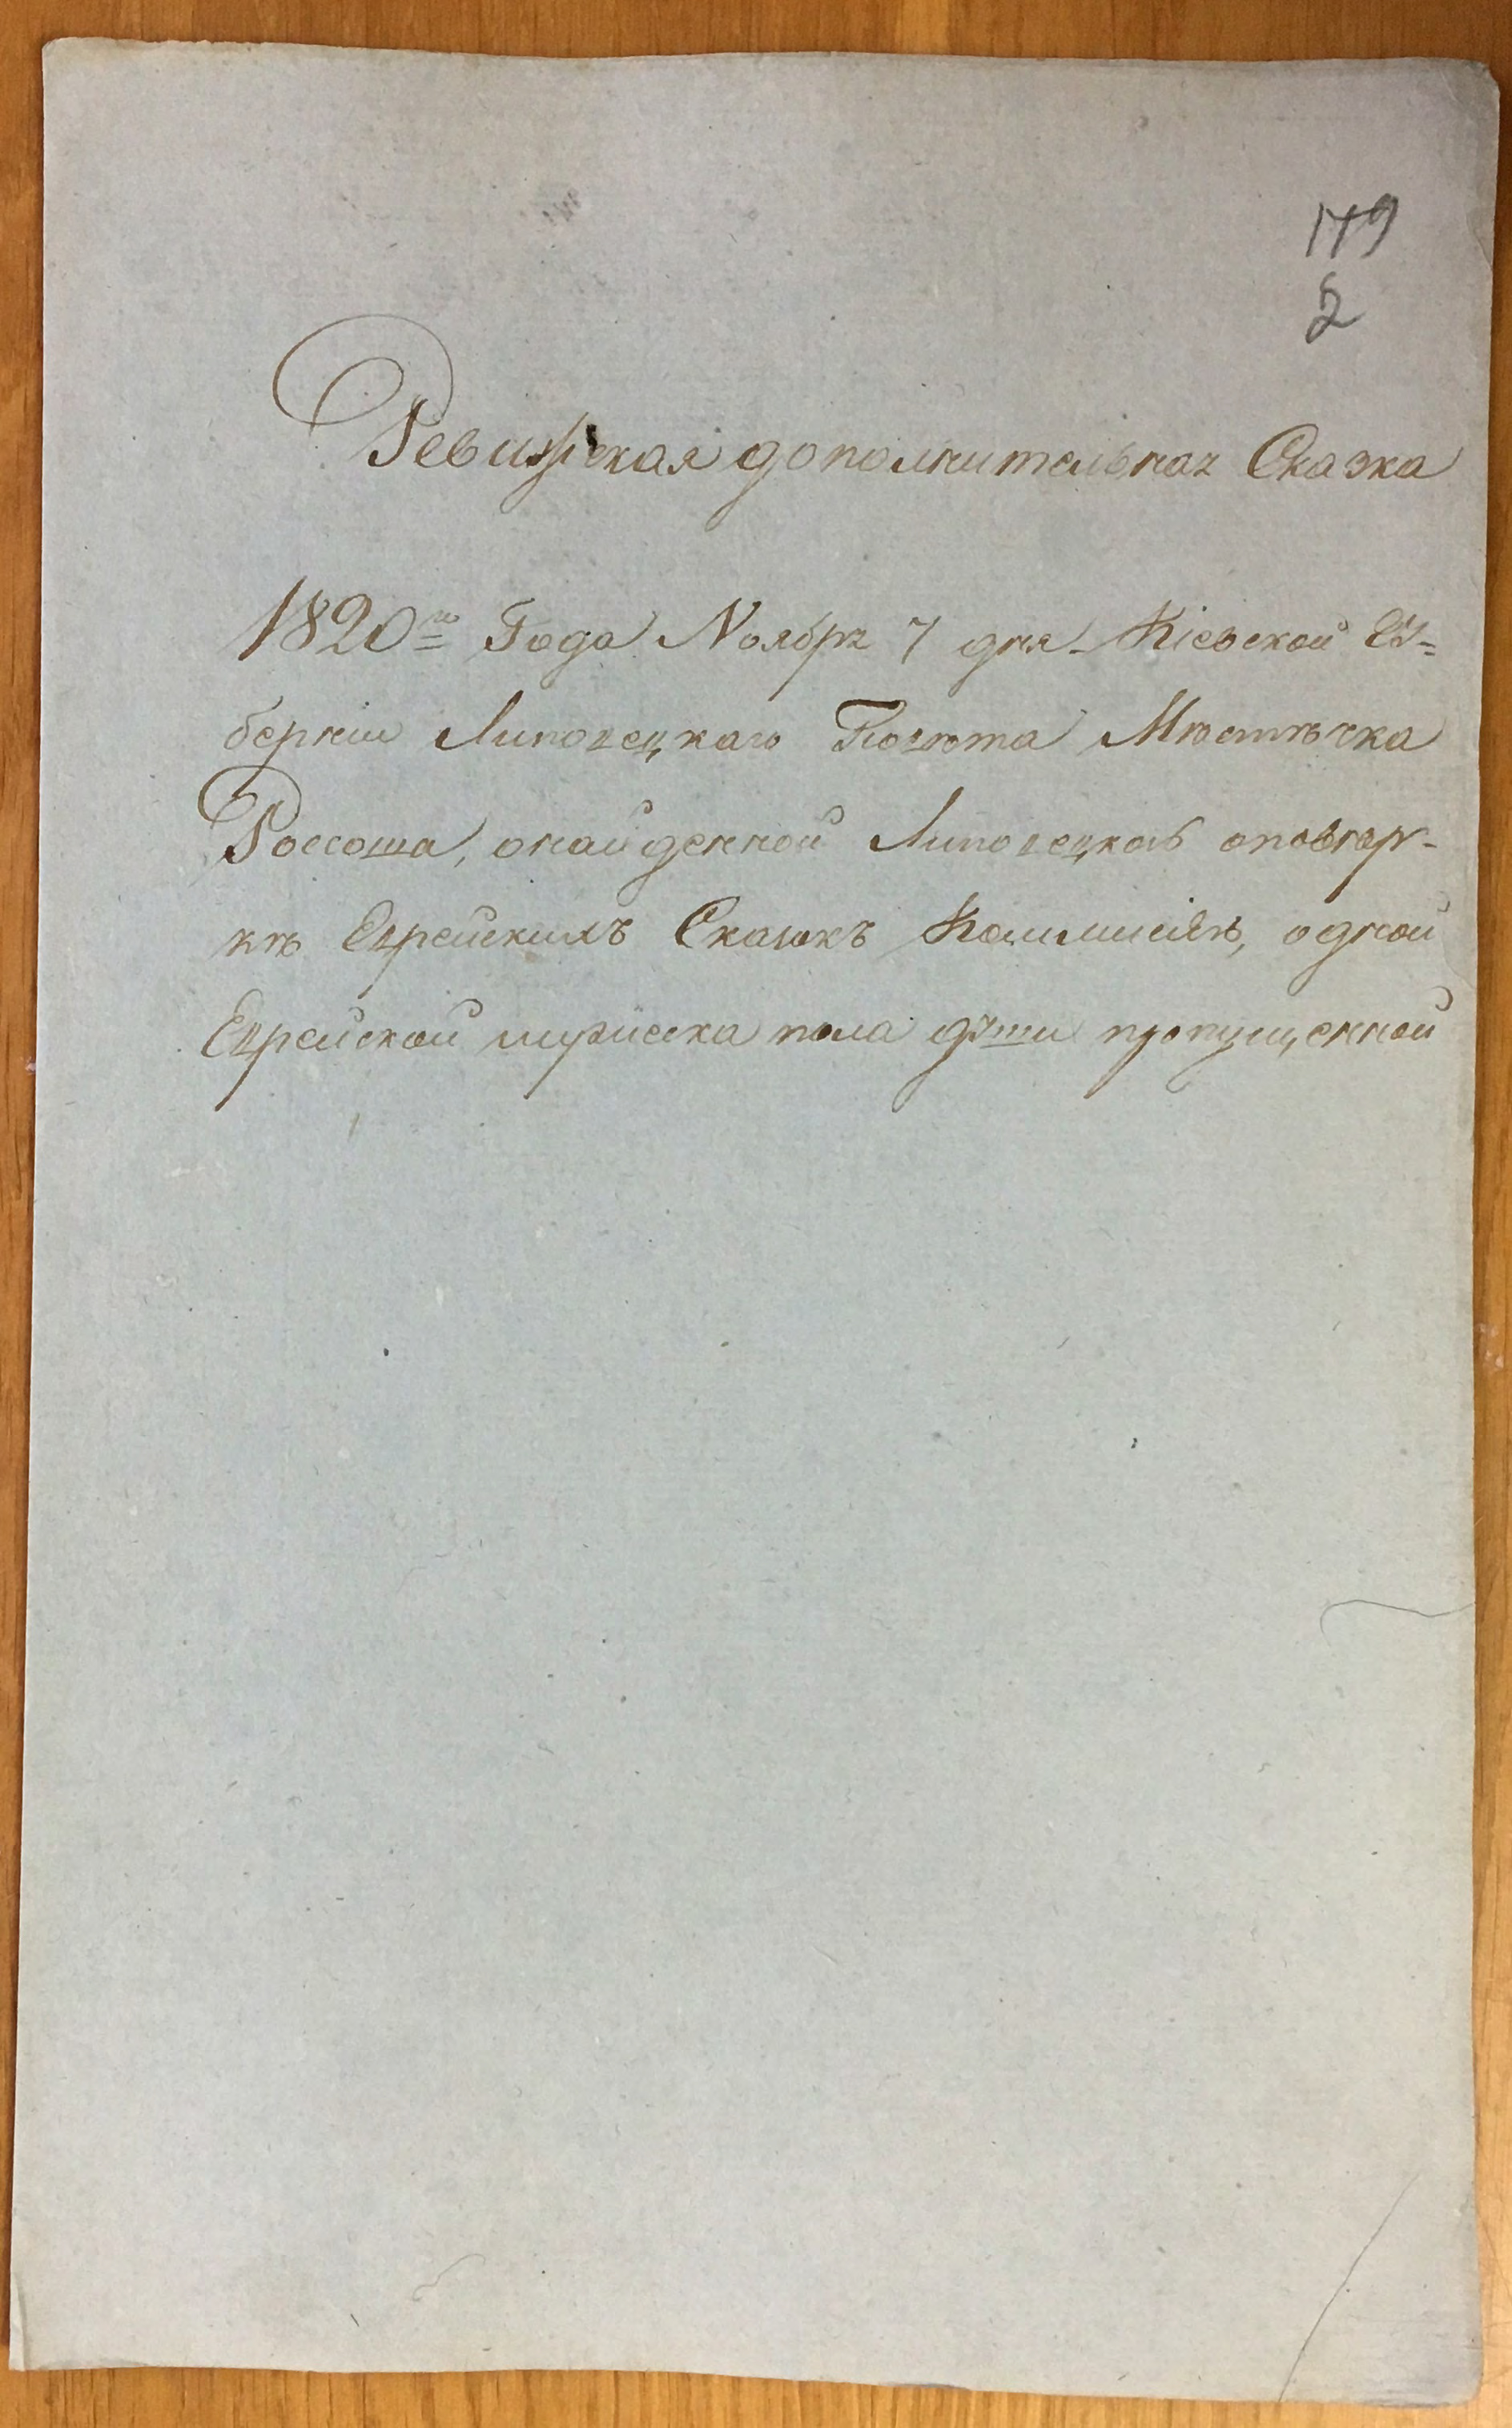 179
2
Ревизская дополнительная Сказка
1820го Года Ноября 7 дня Кіевской Гу=
берніи Липовецкаго Повѣта Мѣстѣчка
Россоша, онайденной Липовецкой оповѣр-
кѣ Еврейскихъ Сказокъ Коммисіею, одной
Еврейской мужеска пола души пропущенной